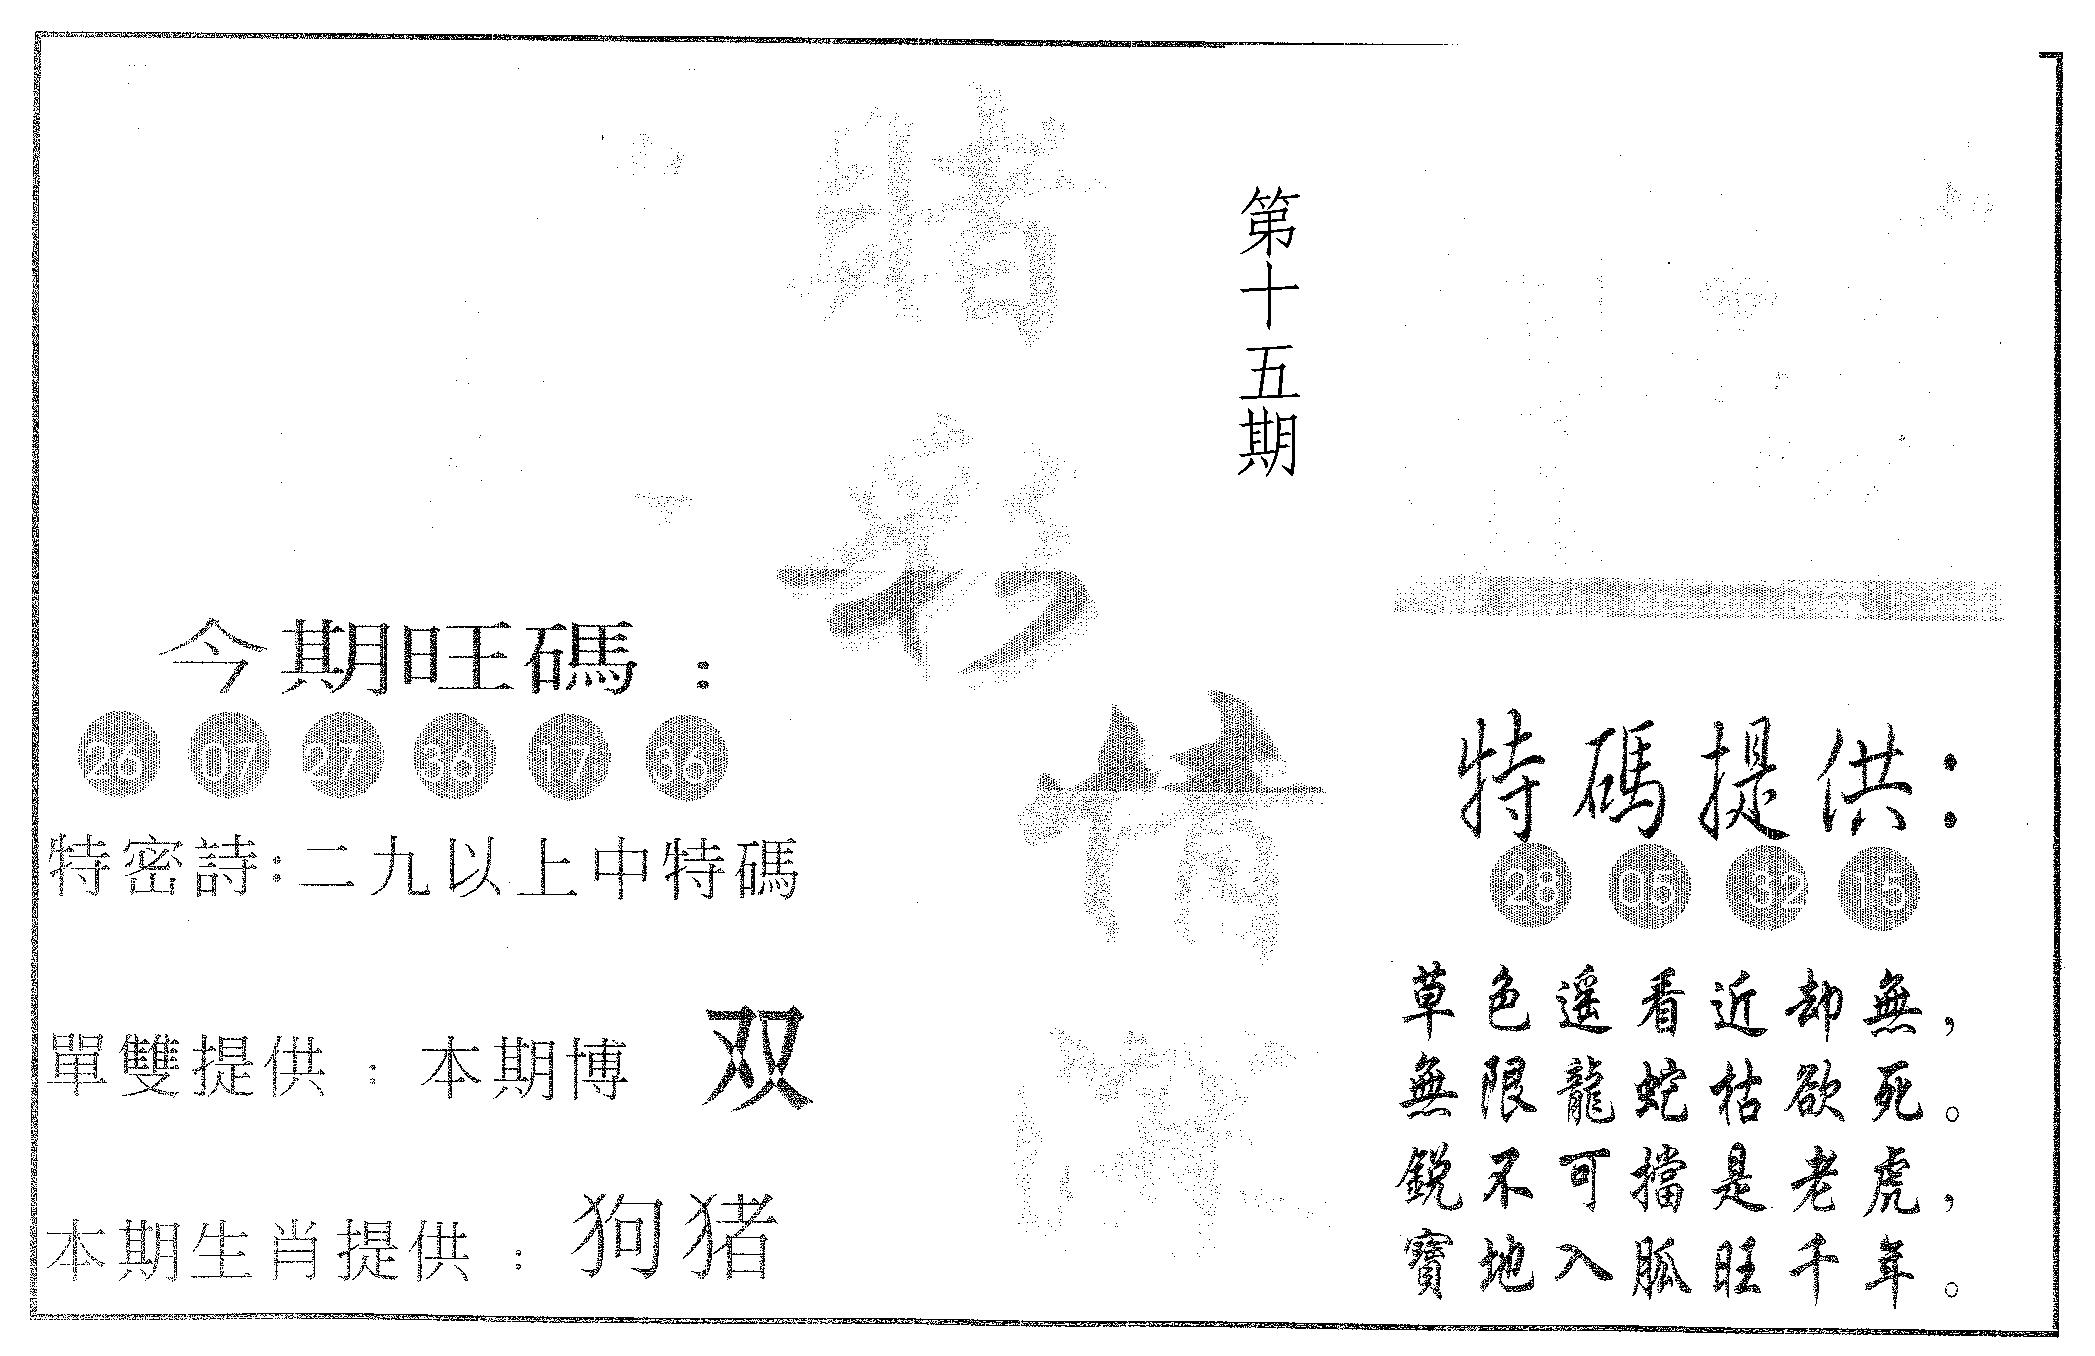 彩情
第十五期
今期旺碼：
26 07 27 36 17 36
特密詩:二九以上中特碼
單雙提供：本期博 双
本期生肖提供：狗猪
特碼提供：
28 05 32 15
草色遥看近却無，
無限龍蛇枯欲死。
鋭不可擋是老虎，
寶地入胍旺千年。